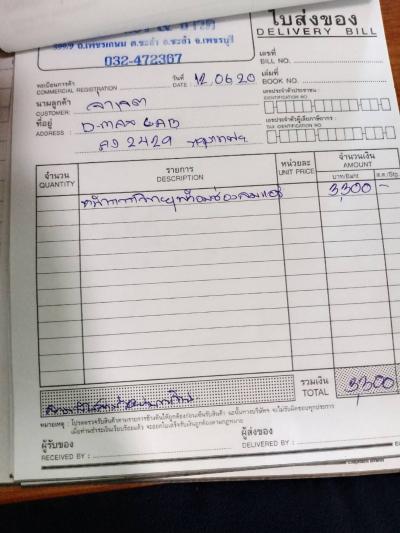 399.9 ถ.เพชรเกษม ต.ชะอำ อ.ชะอำ จ.เพชรบุรี
032-472367
ใบส่งของ
DELIVERY BILL
ทะเบียนการค้า
COMMERCIAL REGISTRATION
วันที่
DATE : 12.06.20
เลขที่
BILL NO.
เล่มที่
BOOK NO.
นามลูกค้า
CUSTOMER:
ที่อยู่
ADDRESS : D-MAX CAB
2429
เลขประจำตัวประชาชน :
IDENTIFICATION NO
เลขประจำตัวผู้เสียภาษีอากร :
TAX IDENTIFICATION NO
จำนวน
QUANTITY
รายการ
DESCRIPTION
หน่วยละ
UNIT PRICE
จำนวนเงิน
AMOUNT
บาท/Baht
ส.ต./Stg.
3,300 -
รวมเงิน
TOTAL 3,300
หมายเหตุ : โปรดตรวจรับสินค้าตามรายการข้างต้นให้ถูกต้องก่อนเซ็นรับสินค้า ฉะนั้นทางบริษัทฯ จะไม่รับผิดชอบทุกประการ
เมื่อท่านชำระเงินเรียบร้อยแล้ว จะออกใบเสร็จรับเงินถูกต้องตามกฎหมาย
ผู้รับของ
RECEIVED BY :
ผู้ส่งของ
DELIVERED BY :